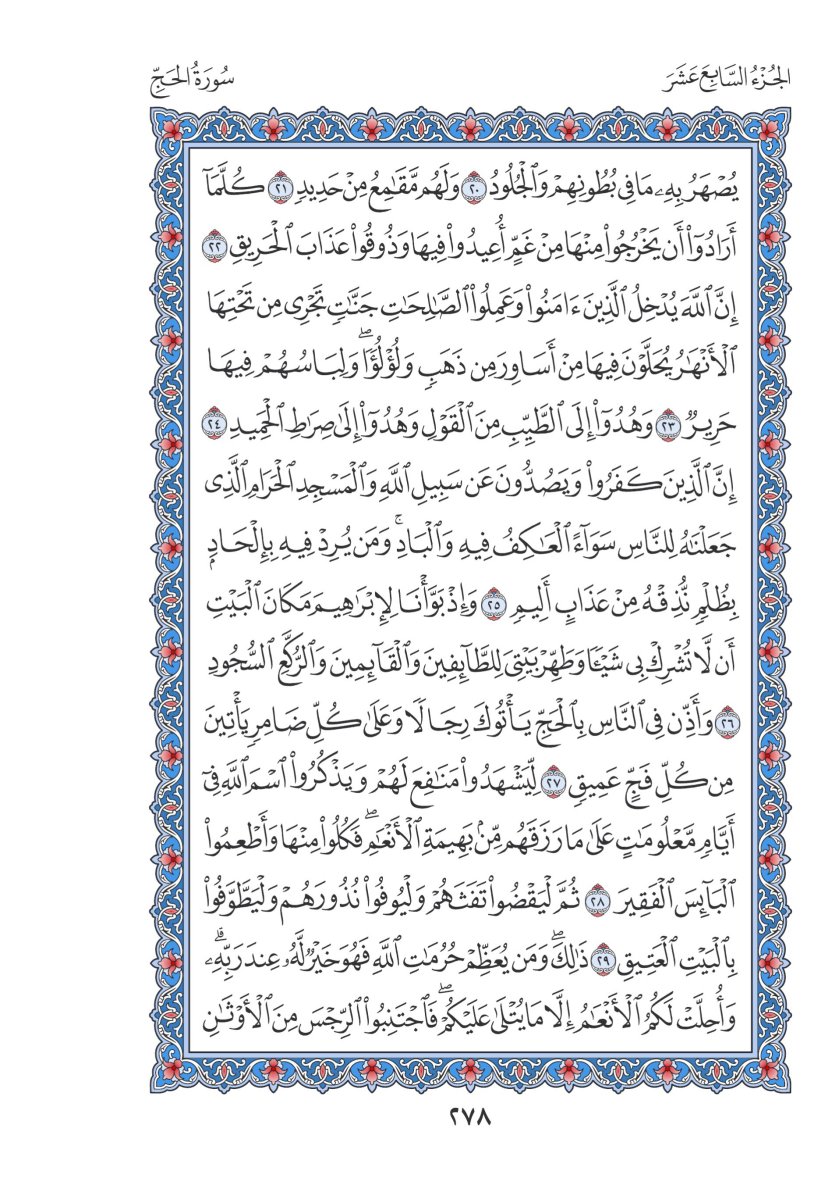 الجُزْءُ السَّابِعَ عَشَرَ
سُورَةُ الحَجِّ
يُصْهَرُ بِهِۦ مَا فِى بُطُونِهِمْ وَٱلْجُلُودُ ٢٠ وَلَهُم مَّقَٰمِعُ مِنْ حَدِيدٍ ٢١ كُلَّمَآ
أَرَادُوٓا۟ أَن يَخْرُجُوا۟ مِنْهَا مِنْ غَمٍّ أُعِيدُوا۟ فِيهَا وَذُوقُوا۟ عَذَابَ ٱلْحَرِيقِ ٢٢
إِنَّ ٱللَّهَ يُدْخِلُ ٱلَّذِينَ ءَامَنُوا۟ وَعَمِلُوا۟ ٱلصَّٰلِحَٰتِ جَنَّٰتٍ تَجْرِى مِن تَحْتِهَا
ٱلْأَنْهَٰرُ يُحَلَّوْنَ فِيهَا مِنْ أَسَاوِرَ مِن ذَهَبٍ وَلُؤْلُؤًا ۖ وَلِبَاسُهُمْ فِيهَا
حَرِيرٌ ٢٣ وَهُدُوٓا۟ إِلَى ٱلطَّيِّبِ مِنَ ٱلْقَوْلِ وَهُدُوٓا۟ إِلَىٰ صِرَٰطِ ٱلْحَمِيدِ ٢٤
إِنَّ ٱلَّذِينَ كَفَرُوا۟ وَيَصُدُّونَ عَن سَبِيلِ ٱللَّهِ وَٱلْمَسْجِدِ ٱلْحَرَامِ ٱلَّذِى
جَعَلْنَٰهُ لِلنَّاسِ سَوَآءً ٱلْعَٰكِفُ فِيهِ وَٱلْبَادِ ۚ وَمَن يُرِدْ فِيهِ بِإِلْحَادٍۭ
بِظُلْمٍ نُّذِقْهُ مِنْ عَذَابٍ أَلِيمٍ ٢٥ وَإِذْ بَوَّأْنَا لِإِبْرَٰهِيمَ مَكَانَ ٱلْبَيْتِ
أَن لَّا تُشْرِكْ بِى شَيْـًٔا وَطَهِّرْ بَيْتِىَ لِلطَّآئِفِينَ وَٱلْقَآئِمِينَ وَٱلرُّكَّعِ ٱلسُّجُودِ
٢٦ وَأَذِّن فِى ٱلنَّاسِ بِٱلْحَجِّ يَأْتُوكَ رِجَالًا وَعَلَىٰ كُلِّ ضَامِرٍ يَأْتِينَ
مِن كُلِّ فَجٍّ عَمِيقٍ ٢٧ لِّيَشْهَدُوا۟ مَنَٰفِعَ لَهُمْ وَيَذْكُرُوا۟ ٱسْمَ ٱللَّهِ فِىٓ
أَيَّامٍ مَّعْلُومَٰتٍ عَلَىٰ مَا رَزَقَهُم مِّنۢ بَهِيمَةِ ٱلْأَنْعَٰمِ ۖ فَكُلُوا۟ مِنْهَا وَأَطْعِمُوا۟
ٱلْبَآئِسَ ٱلْفَقِيرَ ٢٨ ثُمَّ لْيَقْضُوا۟ تَفَثَهُمْ وَلْيُوفُوا۟ نُذُورَهُمْ وَلْيَطَّوَّفُوا۟
بِٱلْبَيْتِ ٱلْعَتِيقِ ٢٩ ذَٰلِكَ ۖ وَمَن يُعَظِّمْ حُرُمَٰتِ ٱللَّهِ فَهُوَ خَيْرٌ لَّهُۥ عِندَ رَبِّهِۦ ۗ
وَأُحِلَّتْ لَكُمُ ٱلْأَنْعَٰمُ إِلَّا مَا يُتْلَىٰ عَلَيْكُمْ ۖ فَٱجْتَنِبُوا۟ ٱلرِّجْسَ مِنَ ٱلْأَوْثَٰنِ
٢٧٨